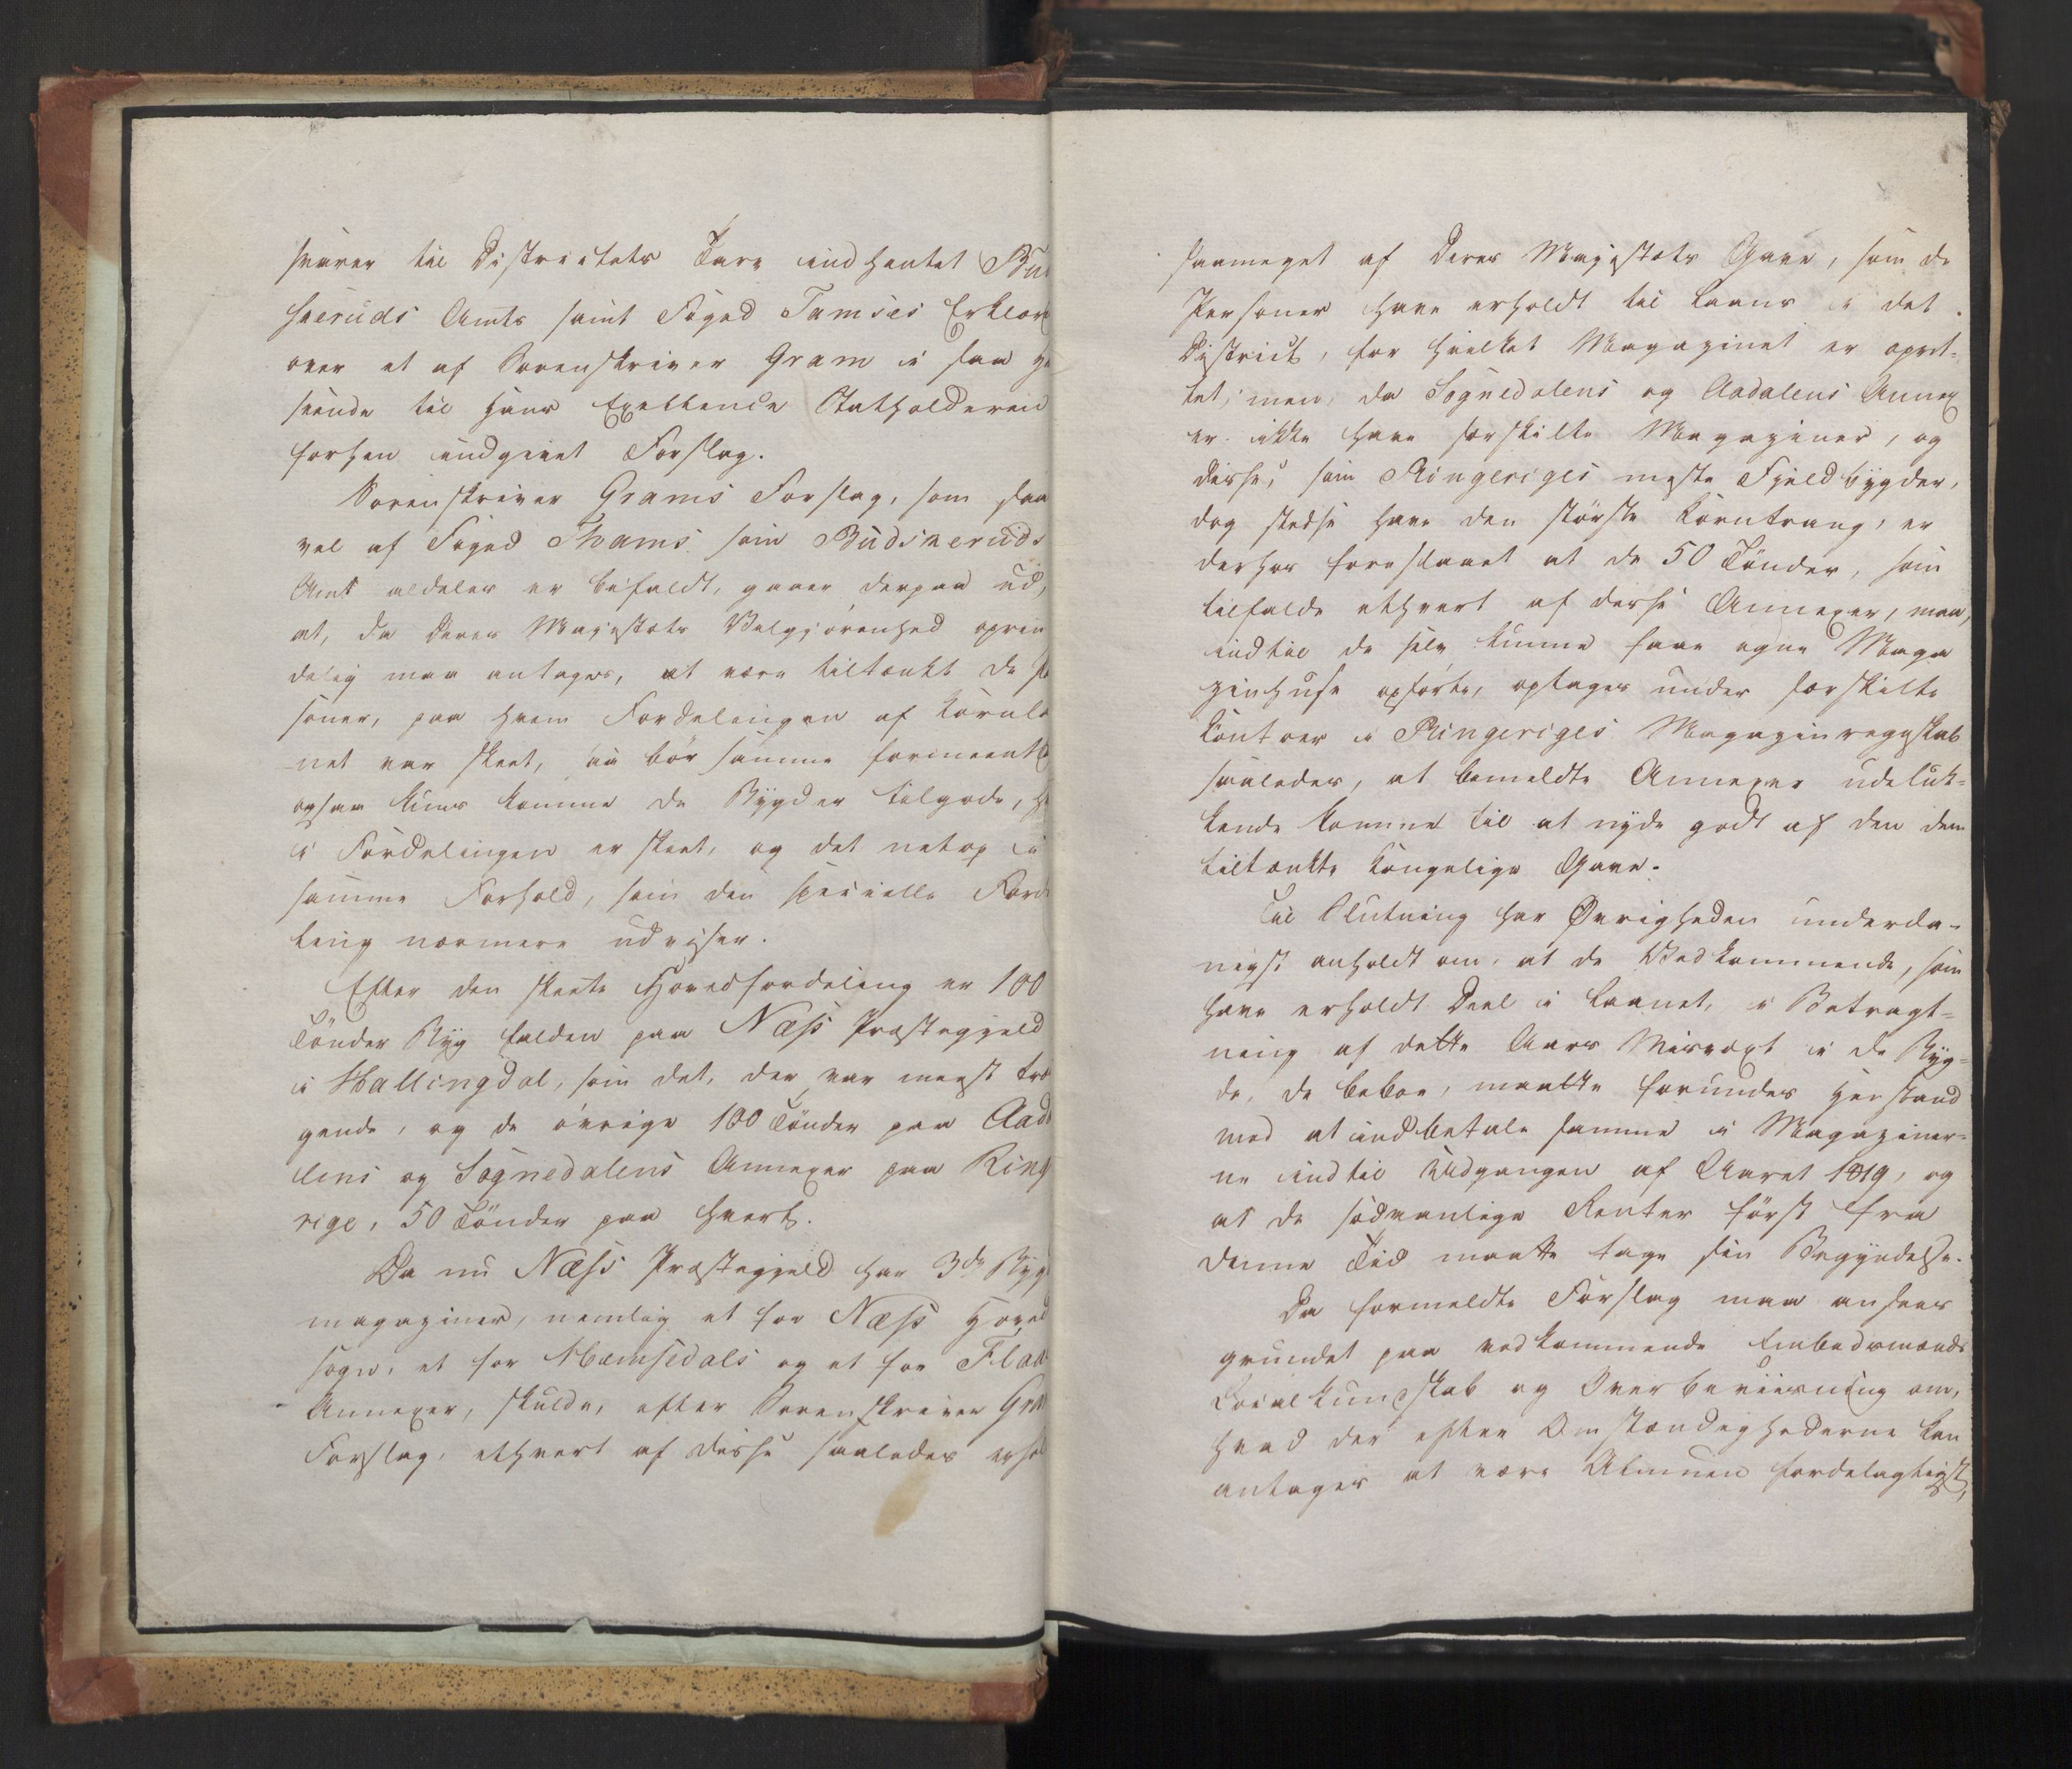 svarer til Districtets Tarv indhentet Bud
skeruds Amts samt Foged Tamses Erklær
over et af Sorenskriver Gram i saa He
seende til Hans Excellence Statholderen
forhen indgivet Forslag.
Sorenskriver Grams Forslag, som saa
vel af Foged Thams som Budskeruds
Amt aldeles er bifaldt, gaaer derpaa ud,
at, da Deres Majestæts Velgjørenhed oprin
delig maa antages, at være tiltænkt de Per
soner, paa hvem Fordelingen af Kornlaa
net var skeet, saa bør samme formeentlig
ogsaa kuns komme de Bygder tilgode, h
i Fordelingen er skeet, og det netop i
samme Forhold, som den specielle Forde
ling nærmere udviser.
Efter den skeete Hovedfordeling er 100
Tønder Byg falden paa Næss Præstegjeld
i Hallingdal, som det, der var meest træn
gende, og de øvrige 100 Tønder paa Aada
lens og Sognedalens Annexer paa Ringe
rige, 50 Tønder paa hvert.
Da nu Næss Præstegjeld har 3de Byg
magaziner, nemlig et for Næss Hoved
sogn, et for Hemsedals og et for Flaa
Annexer, skulde, efter Sorenskriver Gra
Forslag, ethvert af disse saaledes erhol
saameget af Deres Majestæts Gave, som de
Personer have erholdt til Laans i det
District, for hvilket Magazinet er opret-
tet; men, da Sognedalens og Aadalens Annex
er ikke have særskilte Magaziner, og
disse, som Ringeriges meste Fjeldbygder,
dog stedse have den største Korntrang, er
derhos foreslaaet at de 50 Tønder, som
tilfalde ethvert af disse Annexer, maa,
indtil de selv kunne faae egne Maga
zinhuse opførte, optages under særskilte
Contoer i Ringeriges Magazinregnskab
saaledes, at bemeldte Annexer udeluk-
kende komme til at nyde godt af den dem
tiltænkte Kongelige Gave.
Til Slutning har Øvrigheden underda-
nigst anholdt om, at de Vedkommende, som
have erholdt Deel i Laanet, i Betragt-
ning af dette Aars Misvæxt i de Byg-
de, de beboe, maatte forundes Henstand
med at indbetale samme i Magaziner-
ne indtil Udgangen af Aaret 1819, og
at de sædvanlige Renter først fra
denne Tid maatte tage sin Begyndelse.
Da formeldte Forslag maa ansees
grundet paa vedkommende Embedsmænds
Localkundskab og Overbeviisning om,
hvad der efter Omstændighederne kan
antages at være Almuen fordelagtigst,